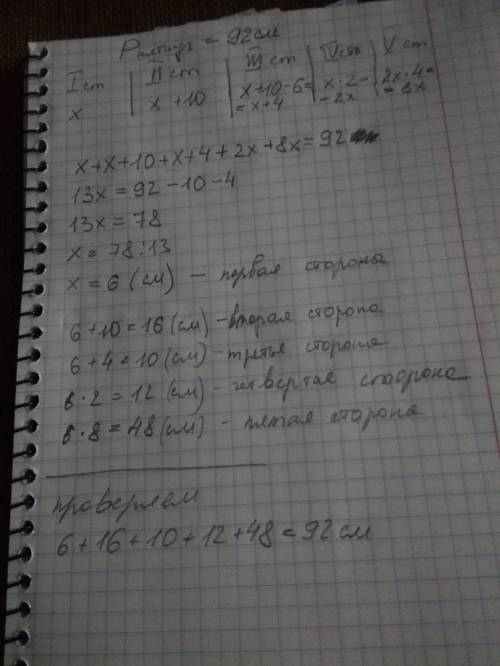 Pпятиуг = 92 см
I ст | II ст | III ст | IV ст | V ст
x | x + 10 | x+10-6= | x · 2 = | 2x · 4 =
= x+4 | = 2x | = 8x
x + x + 10 + x + 4 + 2x + 8x = 92
13x = 92 - 10 - 4
13x = 78
x = 78 : 13
x = 6 (см) - первая сторона
6 + 10 = 16 (см) - вторая сторона
6 + 4 = 10 (см) - третье сторона
6 · 2 = 12 (см) - четвертая сторона
6 · 8 = 48 (см) - пятая сторона
проверяем
6 + 16 + 10 + 12 + 48 = 92 см